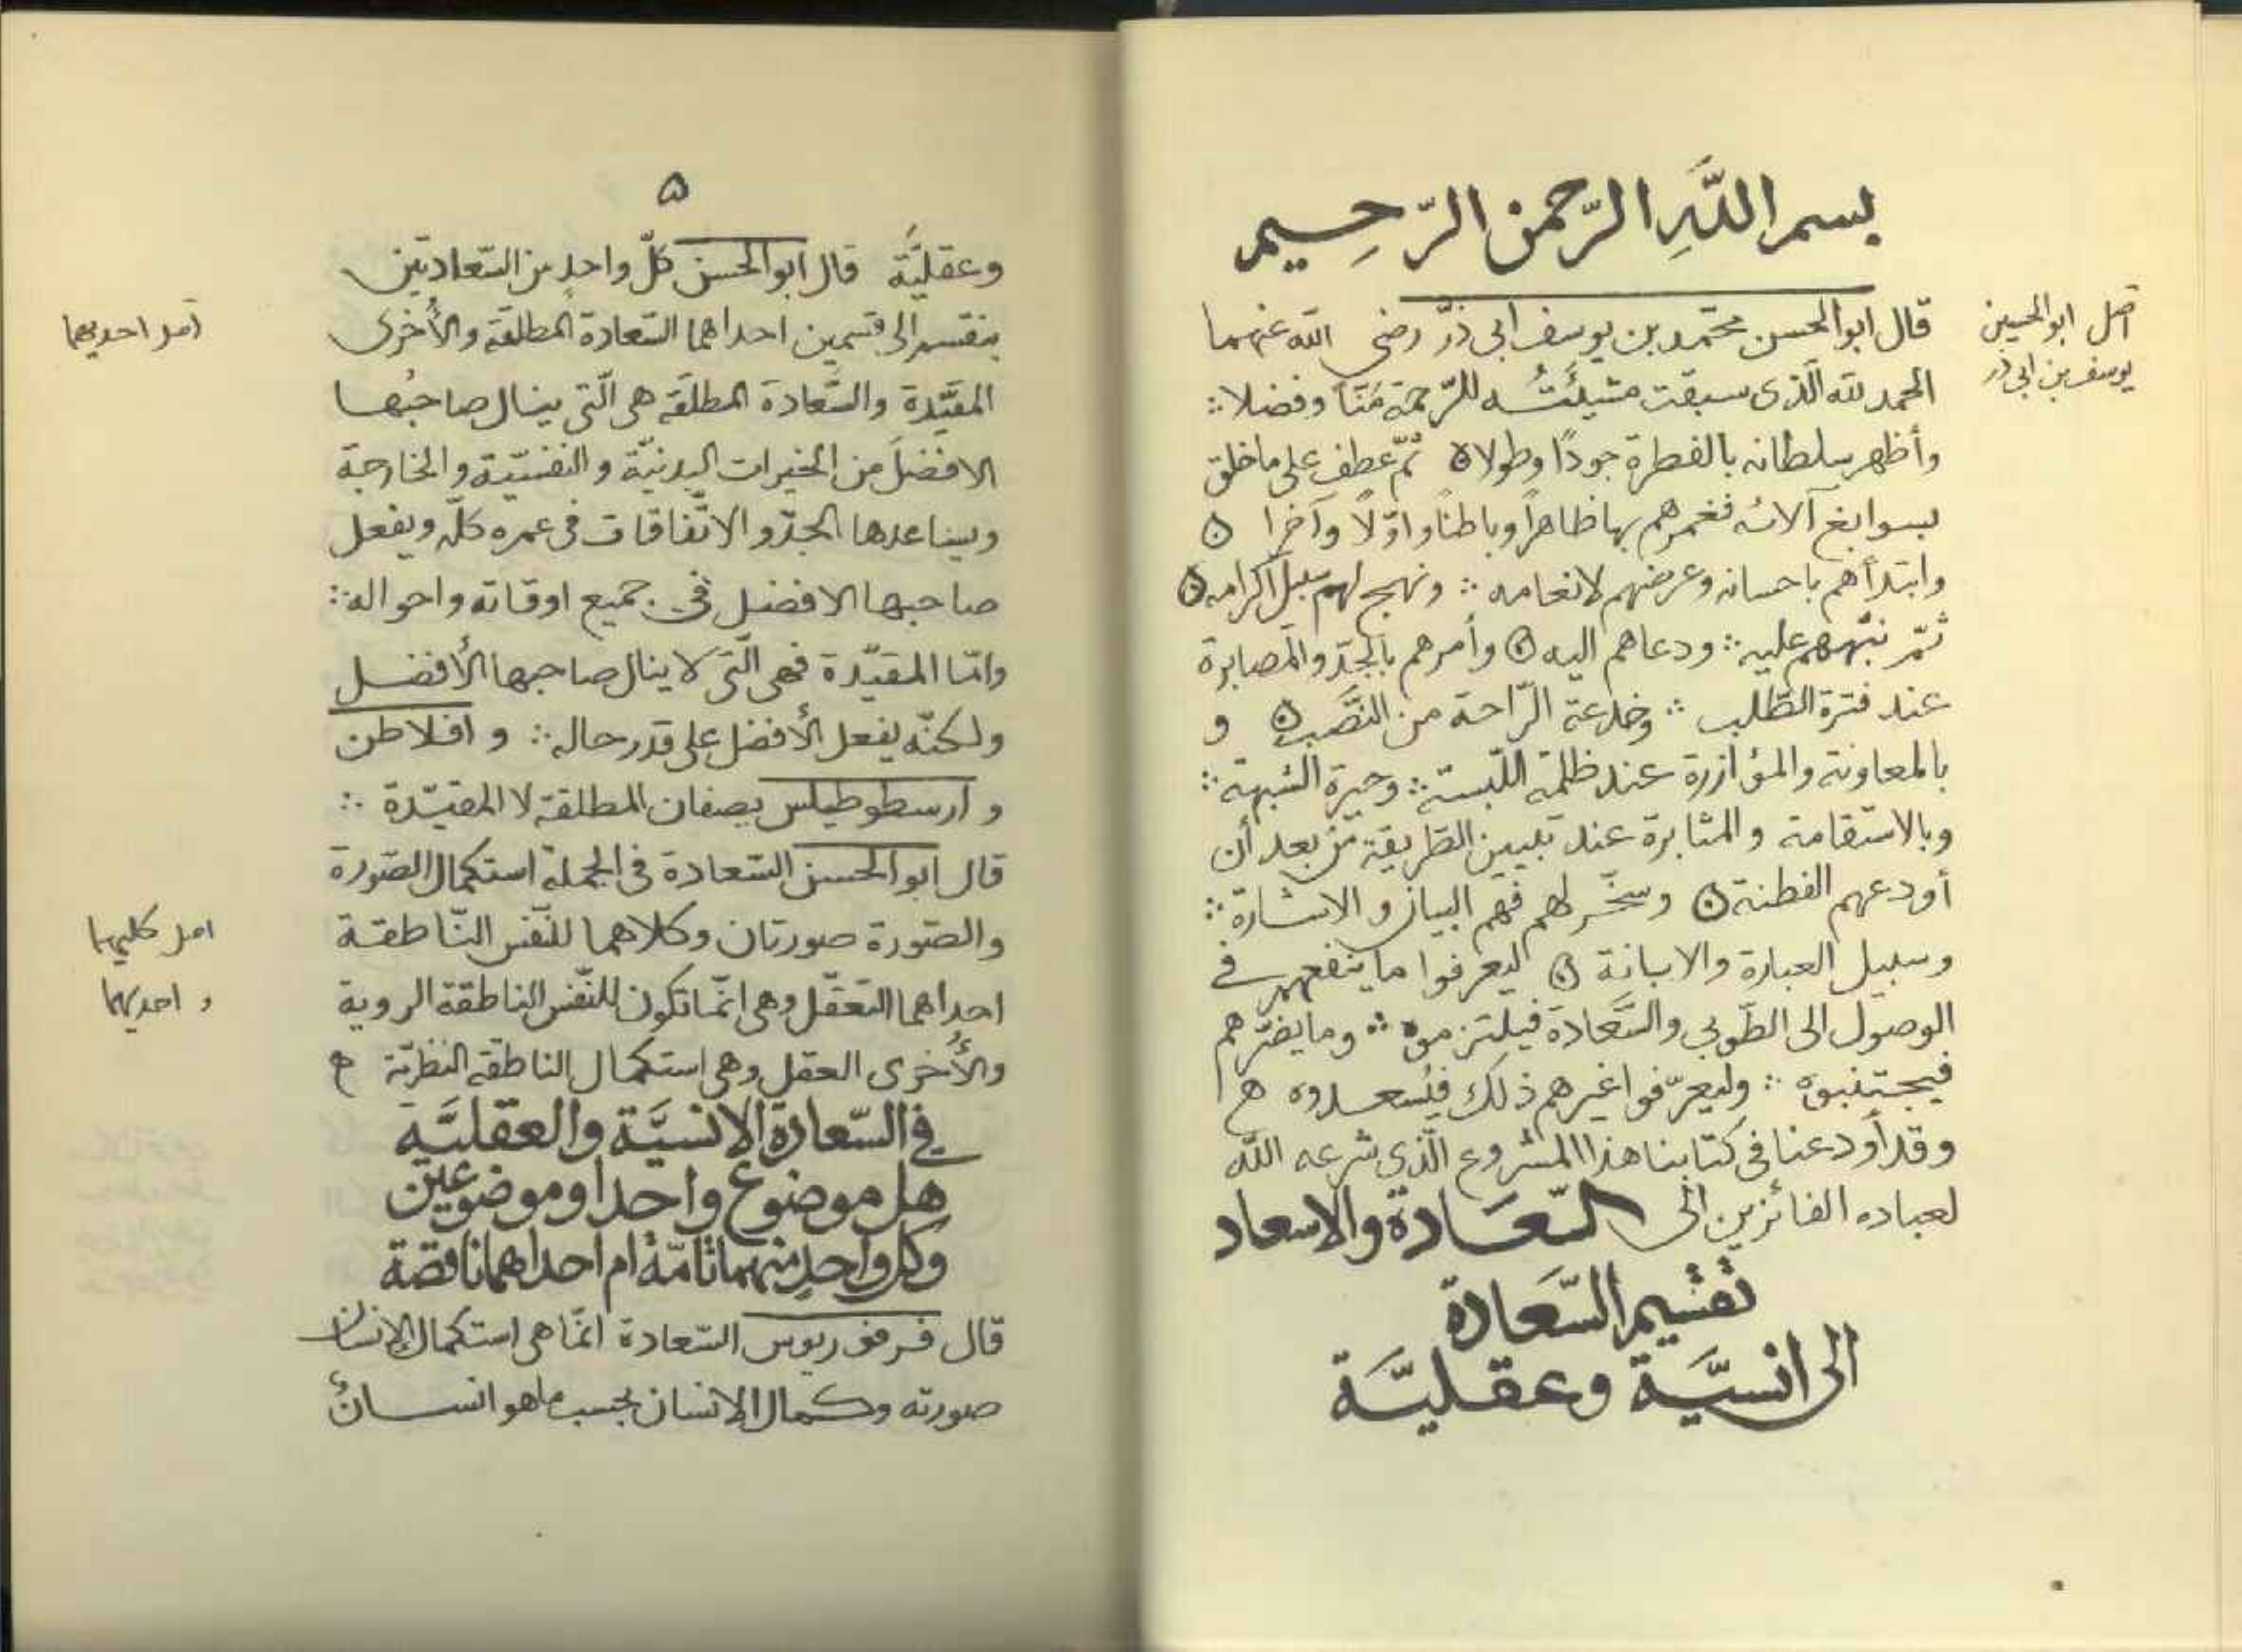 بسم اللَّهِ الرّحمن الرّحِيم
اصل ابوالحسين
يوسف بن ابى ذر
قال ابوالحسن محمّد بن يوسف ابى ذرّ رضى الله عنهما
الحمد لله الّذى سبقت مشيئَتُه للرّحمة مَنّا وفضلا ∴
وأظهر سلطانه بالفطرة جودًا وطولا ۞ ثمّ عطف على ما خلق
بسوابغ آلائه فغمرهم بها ظاهراً وباطناً واوّلاً وآخرا ۞
وابتدأهم باحسانه وعرضهم لانعامه ∴ ونهج لهم سبل اكرامه ۞
ثمّ نبّههم عليه ∴ ودعاهم اليه ۞ وأمرهم بالجدّ والمصابرة
عند فترة الطّلب ∴ وخدعة الرّاحة من النصَّب ۞ و
بالمعاونة والمؤازرة عند ظلمة اللّبسة ∴ وحيرة الشبهة ∴
وبالاستقامة والمثابرة عند تبيين الطّريقة من بعد أن
أودعهم الفطنة ۞ وسخّر لهم فهم البيان والاشارة ∴
وسبيل العبارة والابانة ۞ ليعرفوا ما ينفعهم فى
الوصول الى الطّوبى والسَّعادة فيلتزموه ∴ وما يضرّهم
فيجتنبوه ∴ وليعرّفوا غيرهم ذلك فيُسعدوه ح
وقد أودعنا فى كتابنا هذا المشروع الّذى شرعه الله
لعباده الفائزين الى السَّعَادة والاسعاد
تقسيم السَّعَادة
الى انسيَّة وعقليَّة
۵
وعقليَّة قال ابوالحسن كلّ واحدٍ من السّعادتين
ينقسم الى قسمين احداهما السّعادة المطلقة والأُخرى
اصل احديهما
المقيّدة والسَّعادة المطلقة هى الّتى ينال صاحبُها
الافضلَ من الخيرات البدنيّة والنفسيّة والخارجة
ويساعدها الجدّ والاتّفاقات فى عمره كلّه ويفعل
صاحبها الافضل فى جميع اوقاته واحواله ∴
وامّا المقيّدة فهى الّتى لا ينال صاحبها الأفضل
ولكنّه يفعل الأفضل على قدر حاله ∴ و افلاطن
و ارسطوطيلس يصفان المطلقة لا المقيّدة ∴
قال ابوالحسن السّعادة فى الجملة استكمال الصّورة
والصّورة صورتان وكلاهما للنّفس النّاطقة
اصل كليهما
احداهما التعقّل وهى انّما تكون للنّفس الناطقة الروية
و احديهما
والأُخرى العقل وهى استكمال الناطقة النظريّة ح
فى السّعادة الانسيَّة والعقليَّة
هل موضوع واحد او موضوعين
وكل واحدٍ منهما تامّة ام احداهما ناقصة
قال فرفوريوس السّعادة انّما هى استكمال الانسان
صورته وكمال الانسان بحسب ما هو انسانٌ